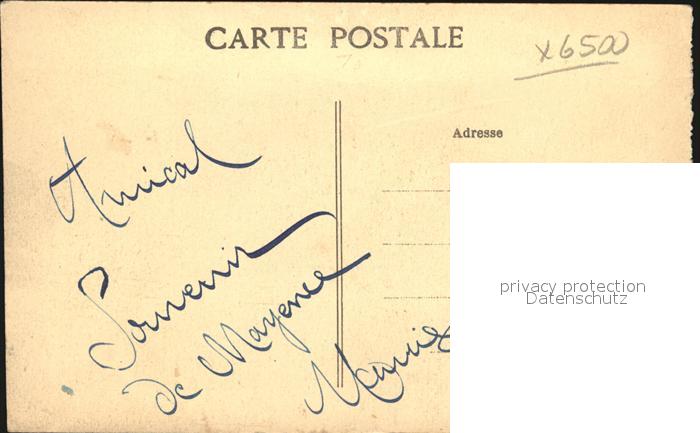 CARTE POSTALE
x6500
Adresse
Amical
Souvenir
de Mayence
privacy protection
Datenschutz